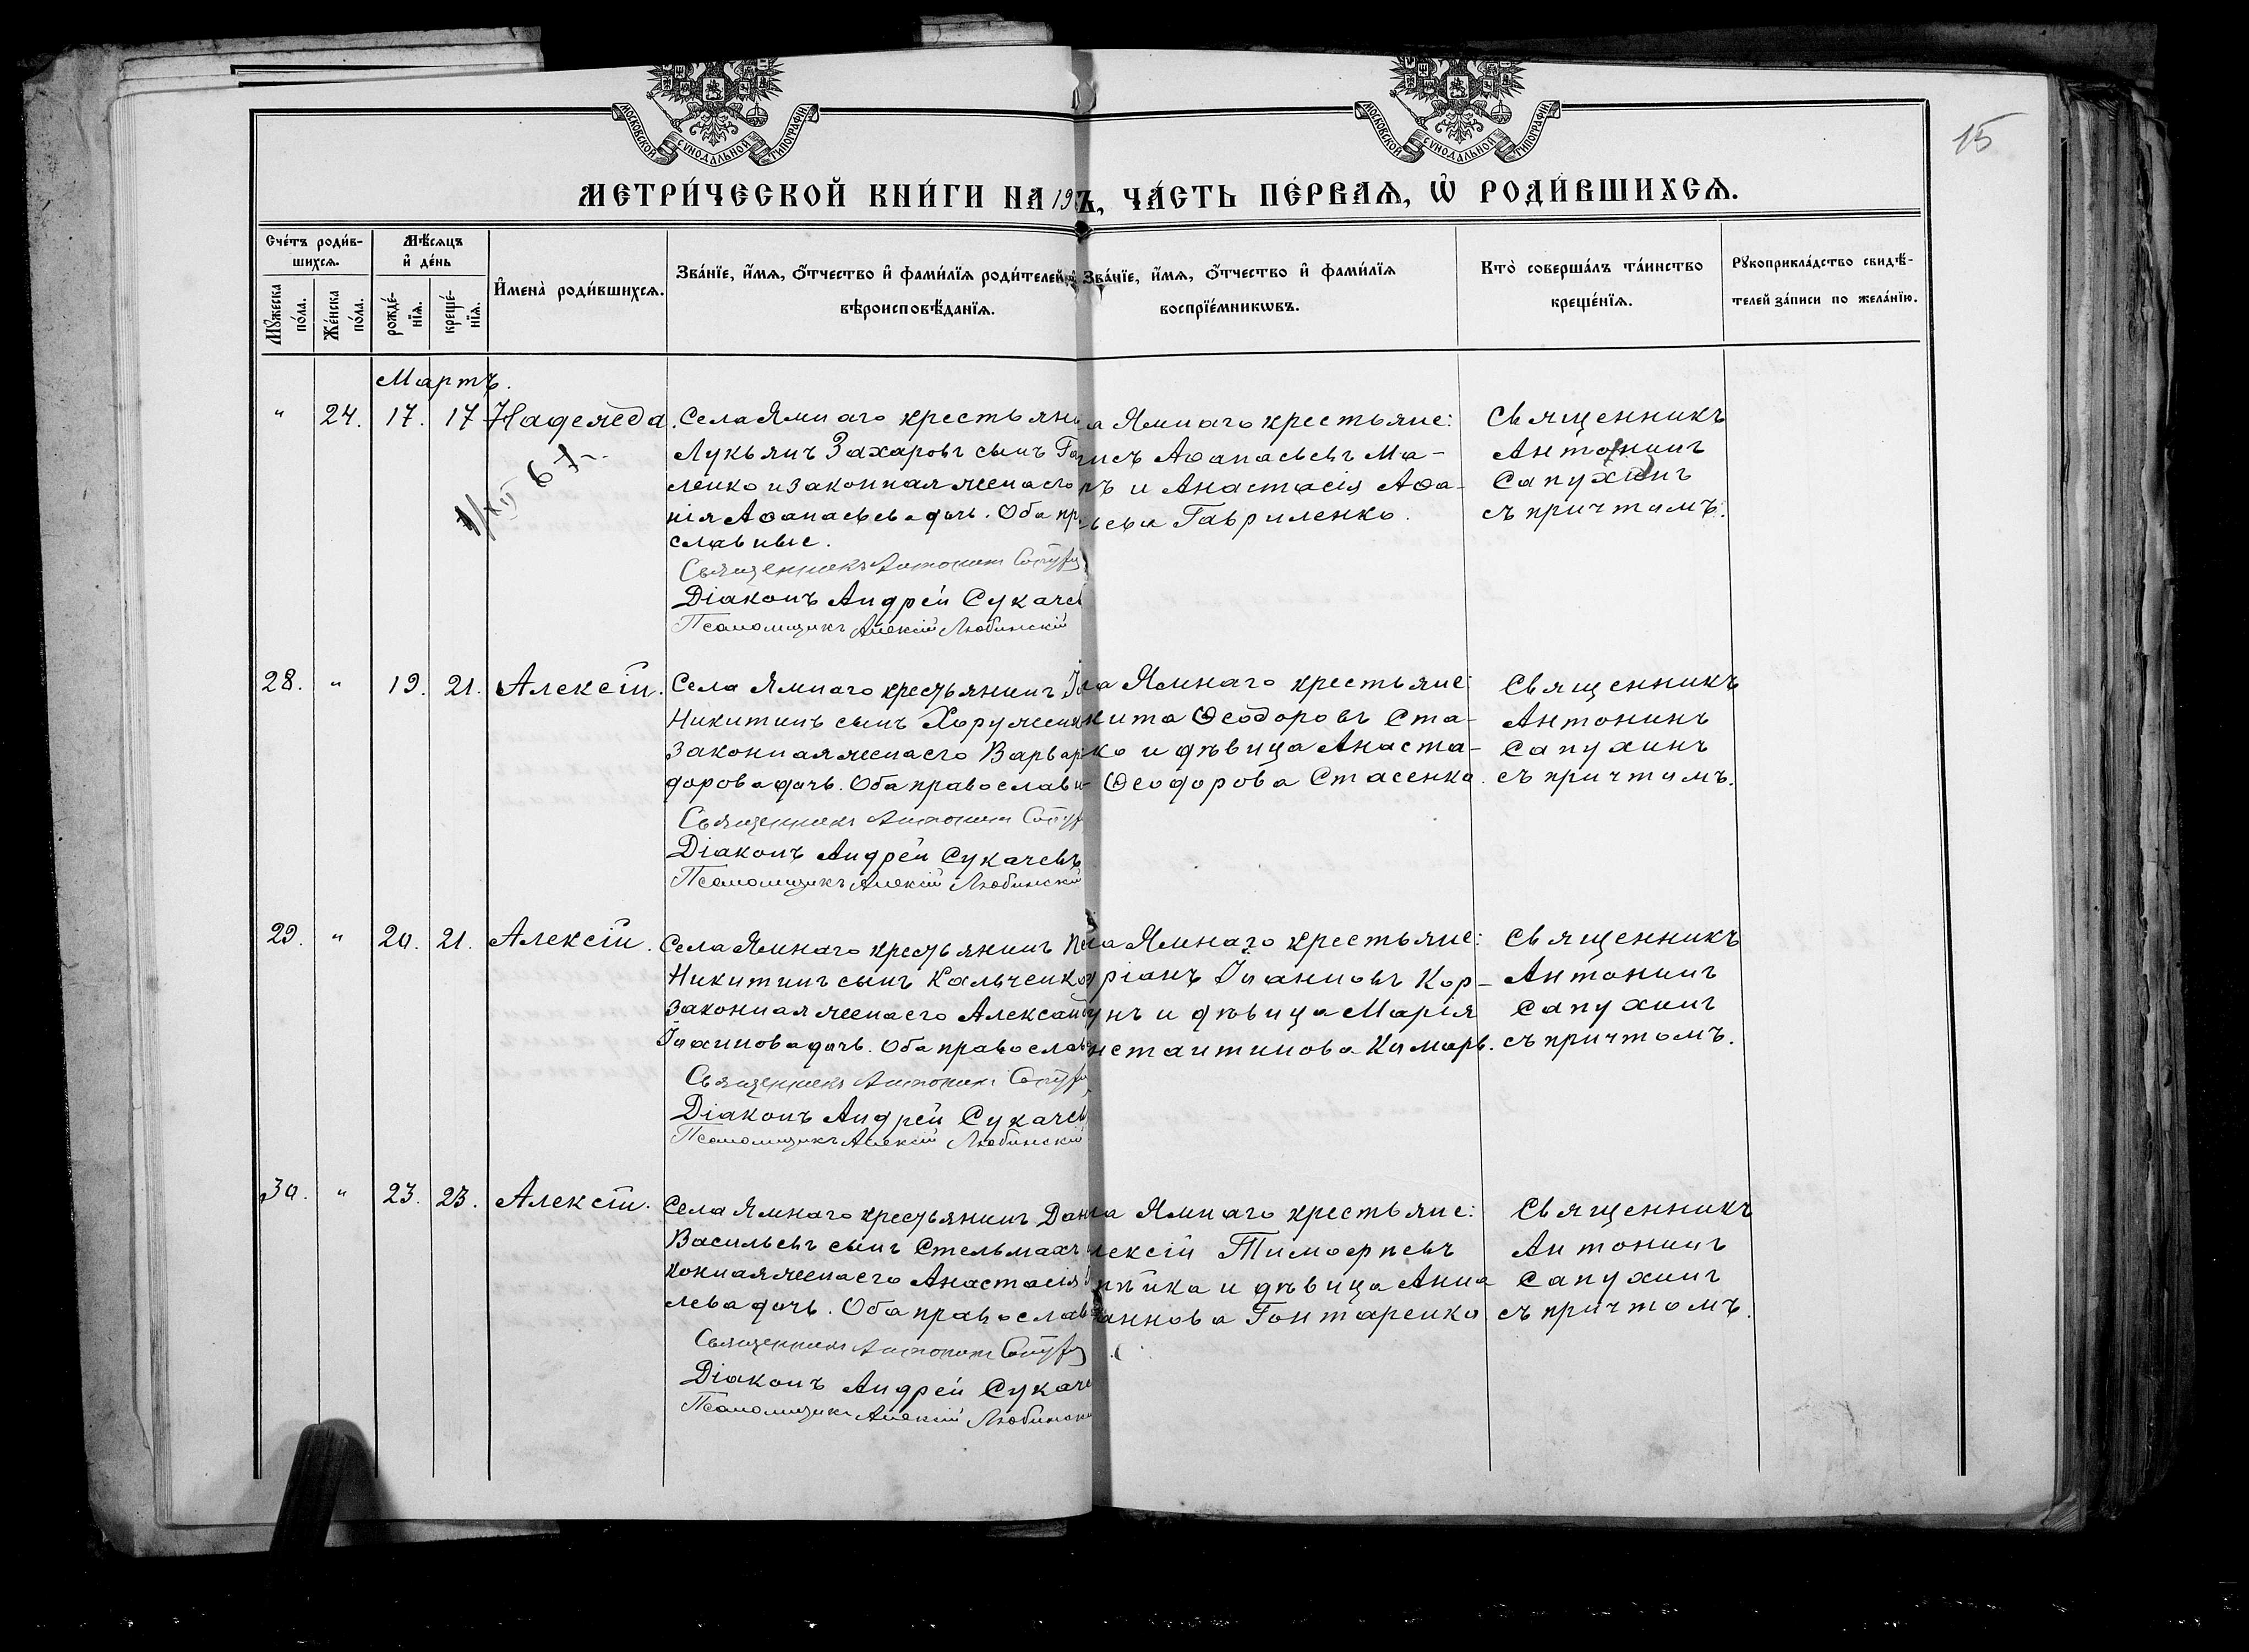 15
МОСКОВСКОЙ СУНОДАЛЬНОЙ ТИПОГРАФІИ
МОСКОВСКОЙ СУНОДАЛЬНОЙ ТИПОГРАФІИ
МЕТРИ́ЧЕСКОЙ КНИ́ГИ НА 19 Ъ, ЧА́СТЬ ПЕ́РВАѦ, Ѽ РОДИ́ВШИХСѦ.
Сче́тъ роди́в-
шихсѧ.
Мꙋ́жеска по́ла.
Же́нска по́ла.
Мѣ́сѧцъ
и҆ де́нь
рожде́-
нїѧ.
креще́-
нїѧ.
И҆мена̀ роди́вшихсѧ.
Зва́нїе, и҆́мѧ, ѻ҆́тчество и҆ фами́лїѧ роди́телей, и҆
вѣроисповѣ́данїѧ.
Зва́нїе, и҆́мѧ, ѻ҆́тчество и҆ фами́лїѧ
воспрїе́мникѡвъ.
Кто̀ соверша́лъ та́инство
креще́нїѧ.
Рꙋкоприкла́дство свидѣ́-
телей за́писи по жела́нїю.
Мартъ.
" 24. 17. 17 Надежда.
Села Ямнаго крестьяни
Лукьянъ Захаровъ сынъ Га
ленко и законная жена его
нія Аѳанасьева дочь. Оба пр
славные.
Священникъ Антонинъ Сапух
Діаконъ Андрей Сукачев
Псаломщикъ Алексій Любинскій
а Ямнаго крестьяне:
Аѳанасьевъ Ма-
ръ и Анастасія Аѳа-
ьева Гавриленко.
Священникъ
Антонинъ
Сапухинъ
съ причтомъ.
28. " 19. 21. Алексій.
Села Ямнаго крестьянинъ
Никитинъ сынъ Хоружен
законная жена его Варвар
дорова дочь. Оба православн
Священникъ Антонинъ Сапух
Діаконъ Андрей Сукачевъ
Псаломщикъ Алексій Любинскій
а Ямнаго крестьяне:
кита Ѳеодоровъ Ста-
ко и дѣвица Анаста-
Ѳеодорова Стасенко.
Священникъ
Антонинъ
Сапухинъ
съ причтомъ.
29. " 20. 21. Алексій.
Села Ямнаго крестьянинъ
Никитинъ сынъ Кальченко
законная жена его Алексан
Іоаннова дочь. Оба православ
Священникъ Антонинъ Сапух
Діаконъ Андрей Сукачев
Псаломщикъ Алексій Любинскій
а Ямнаго крестьяне:
ріанъ Іоанновъ Кор-
унъ и дѣвица Марія
нстантинова Комарь.
Священникъ
Антонинъ
Сапухинъ
съ причтомъ.
30. " 23. 23. Алексій.
Села Ямнаго крестьянинъ Дан
Васильевъ сынъ Стельмахъ
конная жена его Анастасія
лева дочь. Оба православ
Священникъ Антонинъ Сапух
Діаконъ Андрей Сукаче
Псаломщикъ Алексій Любинскі
а Ямнаго крестьяне:
лексій Тимоѳеевъ
рѣйка и дѣвица Анна
аннова Гонтаренко.
Священникъ
Антонинъ
Сапухинъ
съ причтомъ.